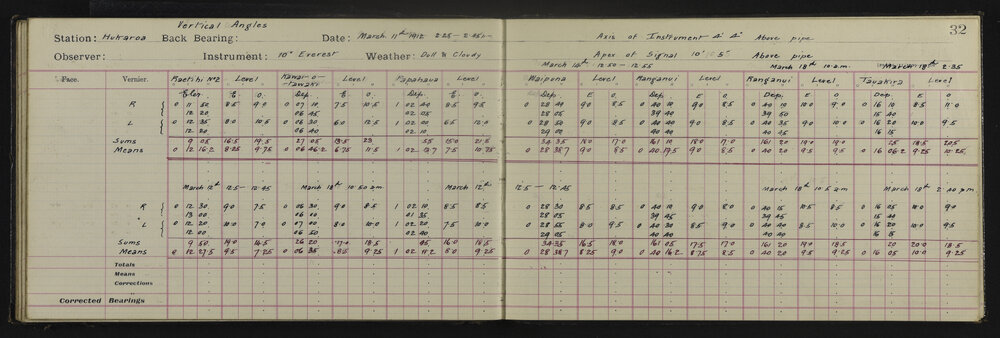 Vertical Angles
32
Station: Hukaroa Back Bearing: Date: March 11th 1912 2.25 - 2.45
Axis of Instrument 4' 4" Above pipe
Observer: Instrument: 10" Everest Weather: Dull & Cloudy
Apex of Signal 10' 5" Above pipe
March 14th 12.50 - 12.55 March 18th 10. a.m. March 18th 2.35
Face. Vernier. Raetihi No 2 Level Level Papahaua Level Waipuna Level Ranganui Level Ranganui Level Tavakira Level
Elev. E. O. Dep. E. O. Dep. E. O. Dep. E O Dep. E. O. Dep. E. O. Dep. E. O.
R 0 11 50 8.5 9.0 0 07 10 7.5 10.5 1 02 40 8.5 9.5 0 28 40 9.0 8.5 0 40 10 9.0 8.5 0 40 10 9.0 9.0 0 16 10 8.5 11.0
12 20 06 45 02 05 28 05 39 40 39 50 15 40
L 0 12 35 8.0 10.5 0 06 30 6.0 12.5 1 02 00 6.5 12.0 0 28 50 9.0 8.5 0 40 40 9.0 8.5 0 40 35 9.0 10.0 0 16 20 10.0 9.5
12 20 06 40 02 10 29 00 40 40 40 45 16 15
Sums 9 05 16.5 19.5 27 05 13.5 23 55 15.0 21.5 34 35 18.0 17.0 161 10 18.0 17.0 161 20 19.0 19.0 25 18.5 20.5
Means 0 12 16.2 8.25 9.75 0 06 46.2 6.75 11.5 1 02 13.7 7.5 10.75 0 28 38.7 9.0 8.5 0 40 17.5 9.0 8.5 0 40 20 9.5 9.5 0 16 06.2 9.25 10.25
March 12th 12.5 - 12.45 March 18th 10.50 a.m March 12th 12.5 - 12.45 March 18th 10.5 a.m March 18th 2.40 p.m.
R 0 12 30 9.0 7.5 0 06 30 9.0 8.5 1 02 10 8.5 8.5 0 28 30 8.5 8.5 0 40 15 9.0 8.0 0 40 15 10.5 8.5 0 16 05 10.0 9.0
13 00 06 00 01 35 28 05 39 45 39 45 15 40
L 0 12 20 10.0 7.0 0 07 00 8.0 10.0 1 02 20 7.5 10.0 0 28 55 8.0 9.5 0 40 30 8.5 9.0 0 40 40 8.5 10.0 0 16 20 10.0 9.5
12 00 06 50 02 40 29 05 40 35 40 40 16 15
Sums 9 50 19.0 14.5 26 20 17.0 18.5 45 16.0 18.5 34 35 16.5 18.0 161 05 17.5 17.0 161 20 19.0 18.5 20 20.0 18.5
Means 0 12 27.5 9.5 7.25 0 06 35 8.5 9.25 1 02 11.2 8.0 9.25 0 28 38.7 8.25 9.0 0 40 16.2 8.75 8.5 0 40 20 9.5 9.25 0 16 05 10.0 9.25
Totals
Means
Corrections
Corrected Bearings